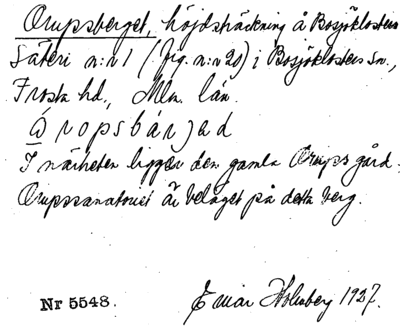 Orupsberget, höjdsträckning å Bosjöklosters
Säteri n:r 1 (Fig. n:r 20) i Bosjöklosters sn.,
Frosta hd., Mlm. län.
Òropsbárjad
I närheten ligger den gamla Orups gård.
Orupssanatoriet är beläget på detta berg.
Nr 5548. Einar Holmberg 1927.